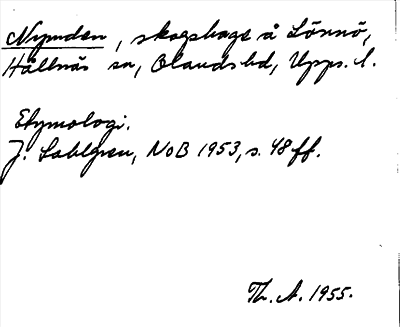 Nymden, skogshage å Lönnö,
Hållnäs sn, Olands hd, Upps. l.
Etymologi.
J. Sahlgren, NoB 1953, s. 48 ff.
Th. A. 1955.